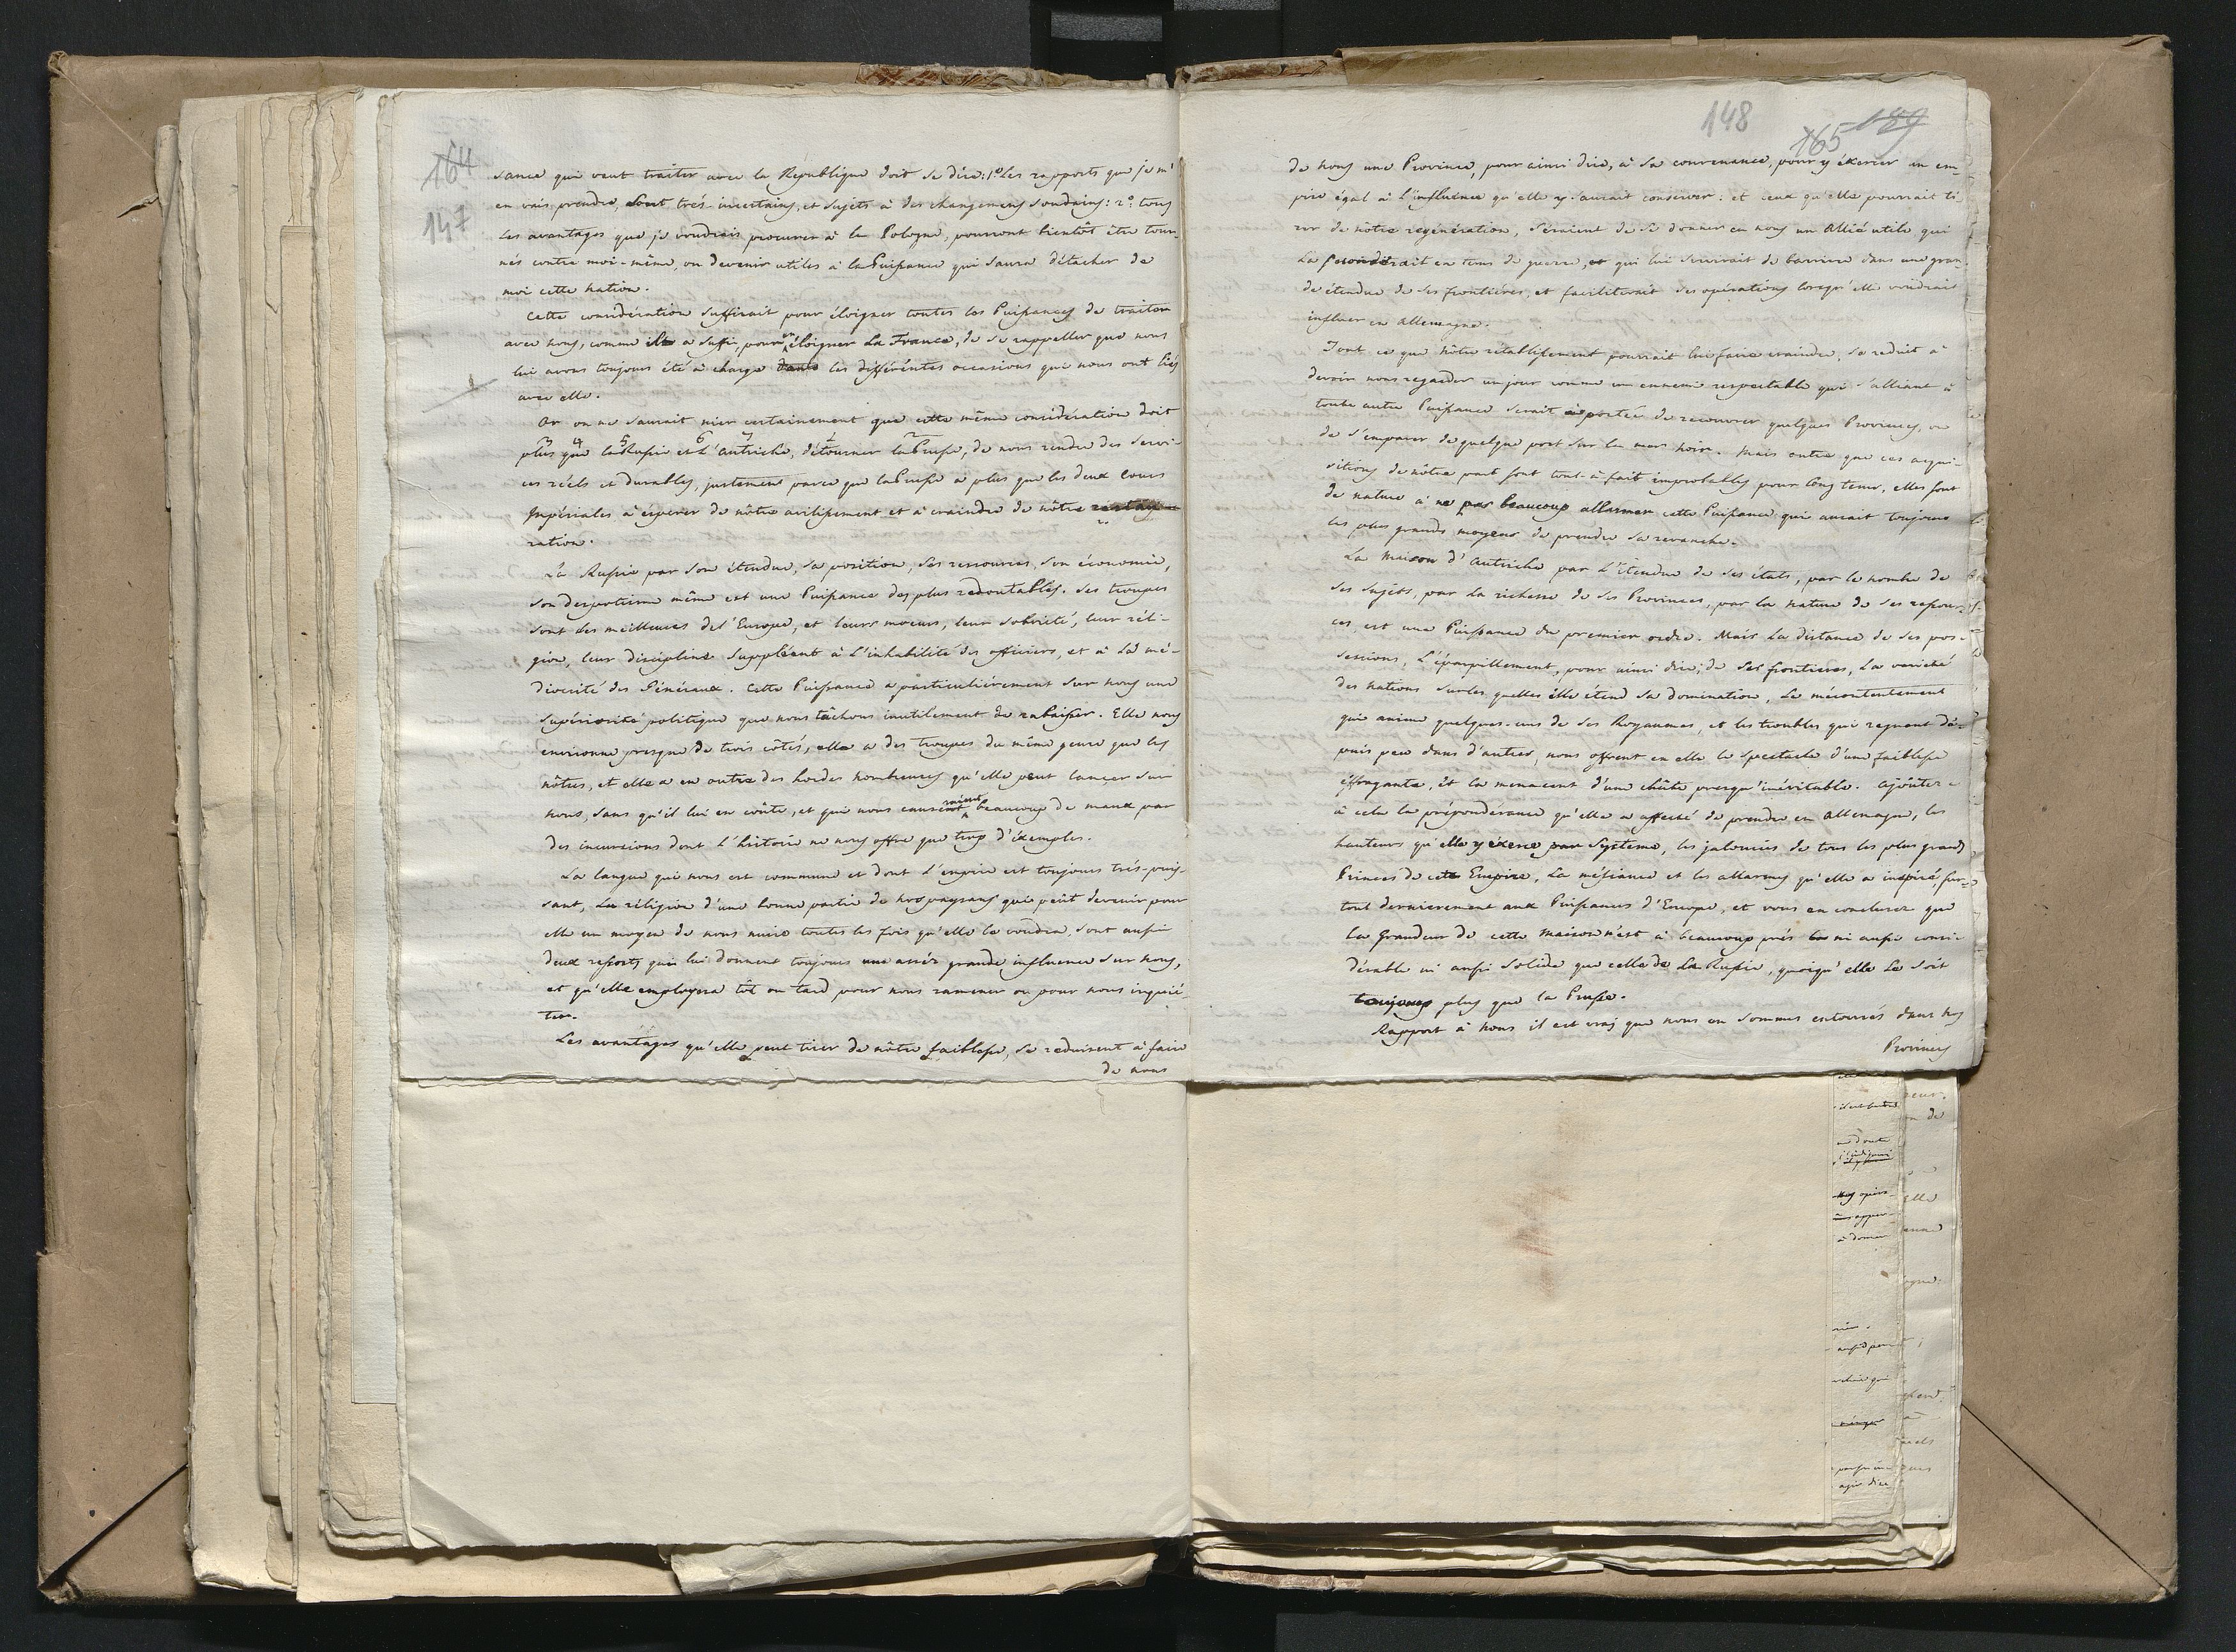 164
147
sance qui veut traiter avec la République doit se dire: 1.º Les rapports que je m'
en vais prendre, sont trés-incertains, et sujets à des changemens soudains: 2.º tous
les avantages que je voudrais procurer à la Pologne, pourront bientôt être tour-
nés contre moi-même, ou devenir utiles à la Puissance qui saura détacher de
moi cette nation.
Cette considération suffirait pour éloigner toutes les Puissances de traiter
avec nous, comme il a suffi, pour en éloigner la France, de se rappeller que nous
lui avons toujours été à charge dans les différentes occasions qui nous ont liés
avec elle.
Or on ne saurait nier certainement que cette même considération doit
3 4 5 6 7 1 2
plus que la Russie et l'Autriche, détourner la Prusse, de nous rendre des servi-
ces réels et durables, justement parce que la Prusse a plus que les deux Cours
Impériales à éspérer de nôtre avilissement et à craindre de nôtre
ration.
La Russie par son étendue, sa position, ses ressources, son économie,
son despotisme même est une Puissance des plus redoutables. Ses troupes
sont les meilleures de l'Europe, et leurs moeurs, leur sobriété, leur réli-
gion, leur discipline suppléent à l'inhabilité des officiers, et à la mé-
diocrité des Généraux. Cette Puissance a particuliérement sur nous une
supériorité politique que nous tâchons inutilement de rabaisser. Elle nous
environne presque de trois côtés, elle a des troupes du même genre que les
nôtres, et elle a en outre des hordes nombreuses qu'elle peut lancer sur
nous, sans qu'il lui en coûte, et qui nous causeraient beaucoup de maux par
des incursions dont l'histoire ne nous offre que trop d'éxemples.
La langue qui nous est commune et dont l'empire est toujours trés-puis-
sant, la réligion d'une bonne partie de nos paysans qui peût devenir pour
elle un moyen de nous nuire toutes les fois qu'elle le voudra, sont aussi
deux ressorts qui lui donnent toujours une assés grande influence sur nous,
et qu'elle employera tôt ou tard pour nous ramener ou pour nous inquié-
ter.
Les avantages qu'elle peut tirer de nôtre faiblesse, se reduisent à faire
de nous
148
165 189
de nous une Province, pour ainsi dire, à sa convenance, pour y éxercer un em-
pire égal à l'influence qu'elle y saurait conserver. et ceux qu'elle pourrait ti-
rer de nôtre regénération, seraient de se donner en nous un Allié utile qui
la seconderait en tems de guerre, et qui lui servirait de barriere dans une gran-
de étendue de ses frontières, et faciliterait ses opérations lorsqu'elle voudrait
influer en Allemagne.
Tout ce que nôtre rétablissement pourrait lui faire craindre, se reduit à
devoir nous regarder un jour comme un ennemi respectable qui s'alliant à
toute autre Puissance serait à portée de recouvrer quelques Provinces, ou
de s'emparer de quelque port sur la mer noire. Mais outre que ces acqui-
sitions de nôtre part sont tout-à-fait improbables pour long tems, elles sont
de nature à ne pas beaucoup allarmer cette Puissance qui aurait toujours
les plus grands moyens de prendre sa revanche.
La Maison d'Autriche par l'étendue de ses états, par le nombre de
ses sujets, par la richesse de ses Provinces, par la nature de ses ressour-
ces, est une Puissance du premier ordre. Mais la distance de ses pos-
sessions, l'éparpillement, pour ainsi dire, de ses frontieres, la varieté
des nations sur les quelles elle étend sa domination, le mécontentement
qui anime quelques-uns de ses Royaumes, et les troubles qui regnent de-
puis peu dans d'autres, nous offrent en elle le spectacle d'une faiblesse
éffrayante, et la menacent d'une chûte presqu'inévitable. Ajoûtez-
à cela la prépondérance qu'elle a affecté de prendre en Allemagne, les
hauteurs qu'elle y éxerce par Systeme, les jalousies de tous les plus grands
Princes de cet Empire, la méfiance et les allarmes qu'elle a inspiré, sur-
tout dernierement aux Puissances d'Europe, et vous en conclurez que
la grandeur de cette maison n'est à beaucoup prés ni aussi consi-
dérable ni aussi solide que celle de la Russie, quoiqu'elle le soit
toujours plus que la Prusse.
Rapport à nous il est vrai que nous en sommes entourrés dans nos
Provinces